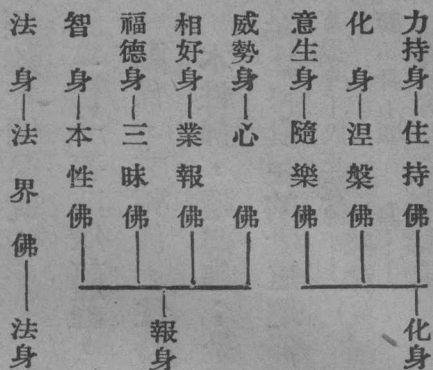 力持身—住持佛
化身—涅槃佛
意生身—隨樂佛
化身
威勢身—心佛
相好身—業報佛
福德身—三昧佛
智身—本性佛
報身
法身—法界佛—法身